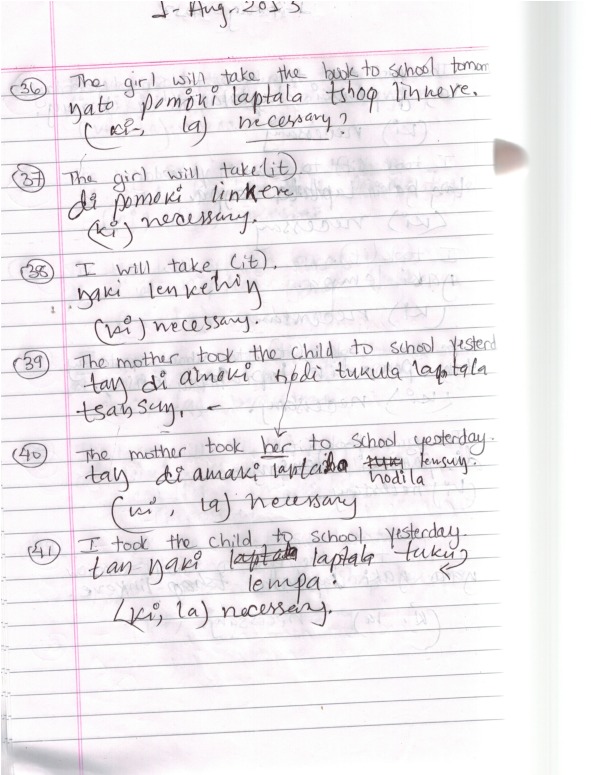 1-Aug-2013
(36) The girl will take the book to school tomorr
yato pomoki laptala tshoq linkere.
(ki-, la) necessary?
(37) The girl will take (it)
di pomoki linkere
(ki) necessary.
(38) I will take (it).
yaki lenkehiy
(ki) necessary.
(39) The mother took the child to school yesterd
tay di amaki hodi tukula laptala
tsansuy.
(40) The mother took her to school yesterday.
tay di amaki laptala lensuy.
hodila
(ki, la) necessary
(41) I took the child to school yesterday.
tan yaki laptala tuku
lempa.
(ki, la) necessary.